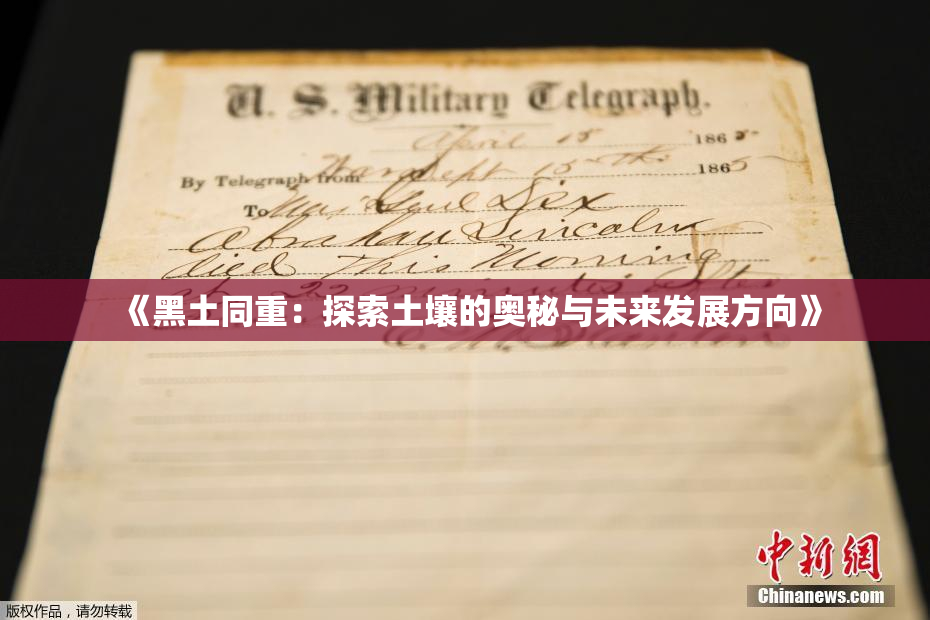 U. S. Military Telegraph.
April 15 1865
By Telegraph from War Dept 15th 1865
To Maj Genl Dix
Abraham Lincoln
died This Morning
at 22 minutes after
《黑土同重：探索土壤的奥秘与未来发展方向》
中新网
Chinanews.com
版权作品，请勿转载